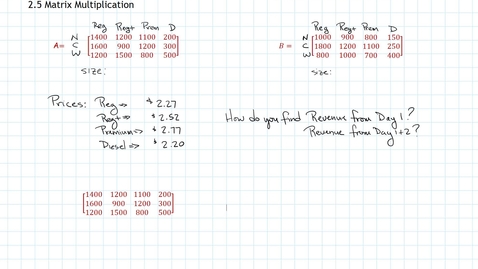 2.5 Matrix Multiplication
Reg Reg+ Prem D
A= N 1400 1200 1100 200
C 1600 900 1200 300
W 1200 1500 800 500
size:
Reg Reg+ Prem D
B = N 1000 900 800 150
C 1800 1200 1100 250
W 800 1000 700 400
size:
Prices: Reg => $ 2.27
Reg+ => $ 2.52
Premium => $ 2.77
Diesel => $ 2.20
How do you find Revenue from Day 1?
Revenue from Day 1+2?
1400 1200 1100 200
1600 900 1200 300
1200 1500 800 500